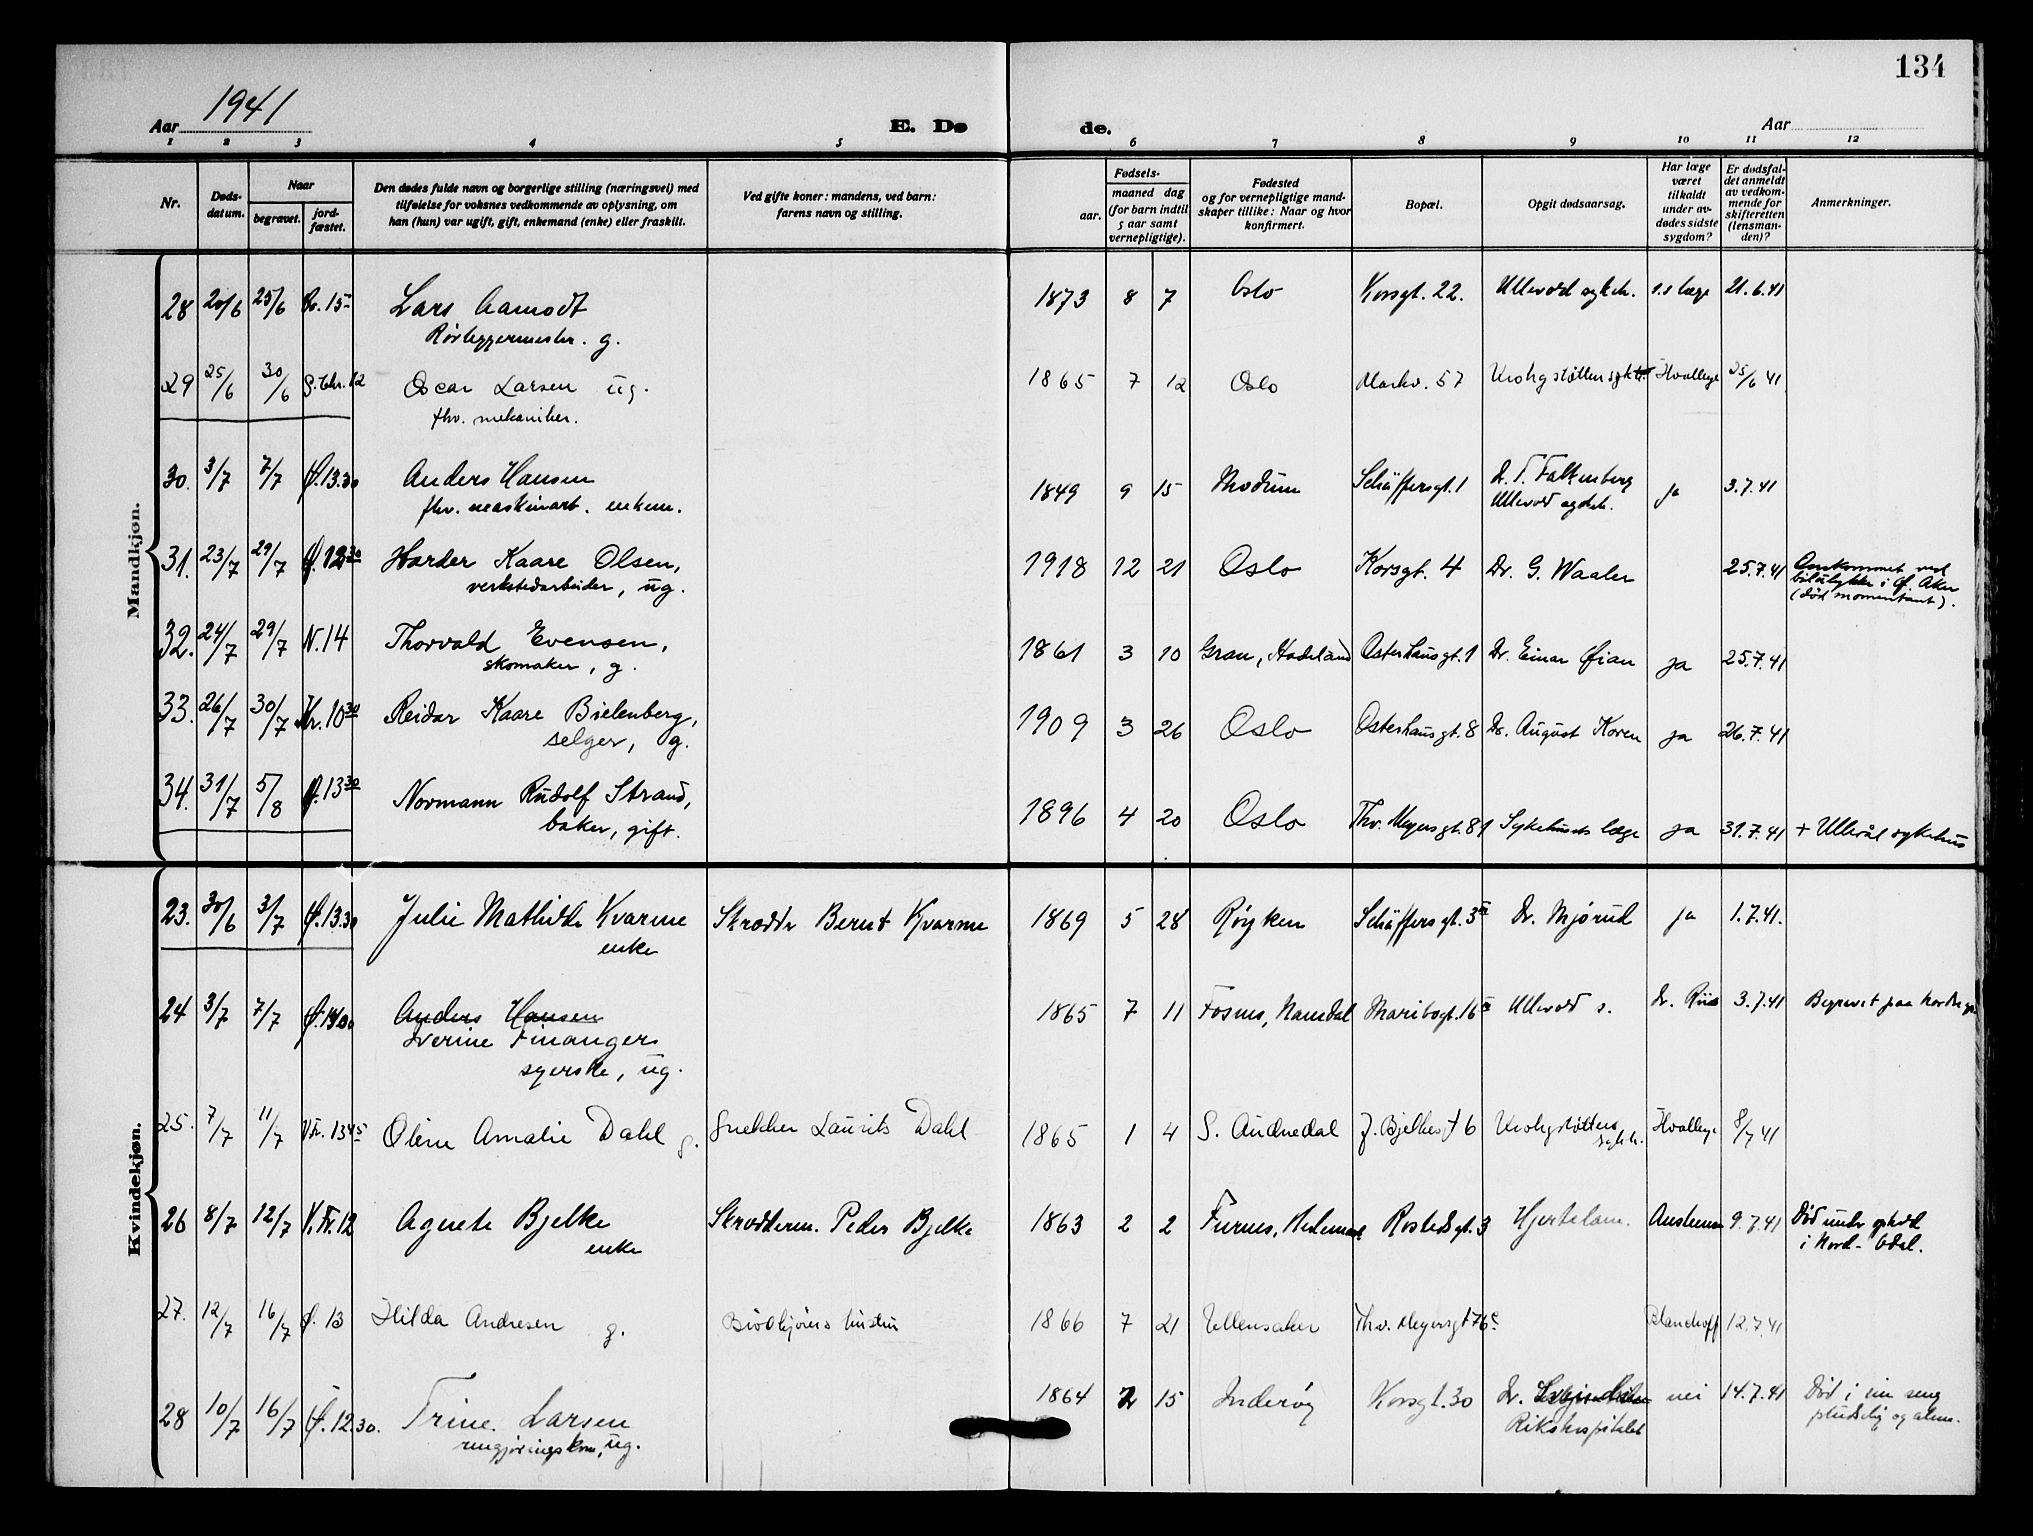 134
Aar 1941
E. Dø
de.
Aar
1 2 3 4 5 6 7 8 9 10 11 12
Nr.
Døds-
datum.
Naar
begravet.
jord-
fæstet.
Den dødes fulde navn og borgerlige stilling (næringsvei) med
tilføielse for voksnes vedkommende av oplysning, om
han (hun) var ugift, gift, enkemand (enke) eller fraskilt.
Ved gifte koner: mandens, ved barn:
farens navn og stilling.
Fødsels-
aar.
maaned dag
(for barn indtil
5 aar samt
vernepligtige).
Fødested
og for vernepligtige mand-
skaper tillike: Naar og hvor
konfirmert.
Bopæl.
Opgit dødsaarsag.
Har læge
været
tilkaldt
under av-
dødes sidste
sygdom?
Er dødsfal-
det anmeldt
av vedkom-
mende for
skifteretten
(lensman-
den)?
Anmerkninger.
Mandkjøn.
28 20/6 25/6 Lars Aamodt 1873 8 7 Oslo Korsgt. 22. Ullevål sykeh. s.s læge 21.6.41
Rørleggermester. g.
29 25/6 30/6 G. Chr. 12 Oscar Larsen ug. 1865 7 12 Oslo Markv. 57 Krohgstøttens sykh. 25/6 41
fhv. mekaniker.
30. 3/7 7/7 Ø. 13.30 Anders Hansen 1849 9 15 Modum Schäffersgt. 1 Dr. T. Falkenberg ja 3.7.41
fhv. maskinarb. enkem. Ullevål sykeh.
31. 23/7 29/7 Ø. 12 30 Harder Kaare Olsen, 1918 12 21 Oslo Korsgt. 4 Dr. G. Waaler 25.7.41 Omkommet ved
verkstedarbeider, ug. bilulykke i Ø. Aker
(død momentant).
32. 24/7 29/7 N. 14 Thorvald Evensen, 1861 3 10 Gran, Hadeland Osterhausgt. 1 Dr. Einar Øian ja 25.7.41
skomaker, g.
33. 26/7 30/7 Kr. 10 30 Reidar Kaare Bielenberg, 1909 3 26 Oslo Osterhausgt. 8 Dr. August Koren ja 26.7.41
selger, g.
34. 31/7 5/8 Ø. 13 30 Normann Rudolf Strand, 1896 4 20 Oslo Thv. Meyersgt. 81 Sykehusets læge ja 31.7.41 + Ullevål sykehus
baker, gift.
Kvindekjøn.
23. 30/6 3/7 Ø. 13.30 Julie Mathilde Kvarme Skrædder Bernt Kvarme 1869 5 28 Røyken Schäffersgt. 3 Dr. Mjørud ja 1.7.41.
enke
24 3/7 7/7 Ø. 14.00 Anders Hansen 1865 7 11 Fosnes, Namdal Maribogt. 16 Ullevål s. 3.7.41 Begravet paa Nordre gr.
Iverine Finanger
syerske, ug.
25. 7/7 11/7 V. Fr. 13 45 Oline Amalie Dahl g. Snekker Laurits Dahl 1865 1 4 S. Audnedal J. Bjelkesgt 6 Krohgstøttens 8/7 41
sykh.
26 8/7 12/7 V. Fr. 12 Agnete Bjelke Skræderm. Peder Bjelke 1863 2 2 Furnes, Hedemark Rostedsgt. 3 Hjertelam. 9.7.41 Død under ophold
enke i Nord-Odal.
27. 12/7 16/7 Ø. 13 Hilda Andresen g. Brødkjørers hustru 1866 7 21 Ullensaker Thv. Meyersgt 76 c Blanchoff 12.7.41
28 10/7 16/7 Ø. 12.30. Trine Larsen 1864 2 15 Inderøy Korsgt. 30 Dr. nei 14.7.41 Død i sin seng
rengjøringskone, ug. Rikshospitalet pludselig og alene.